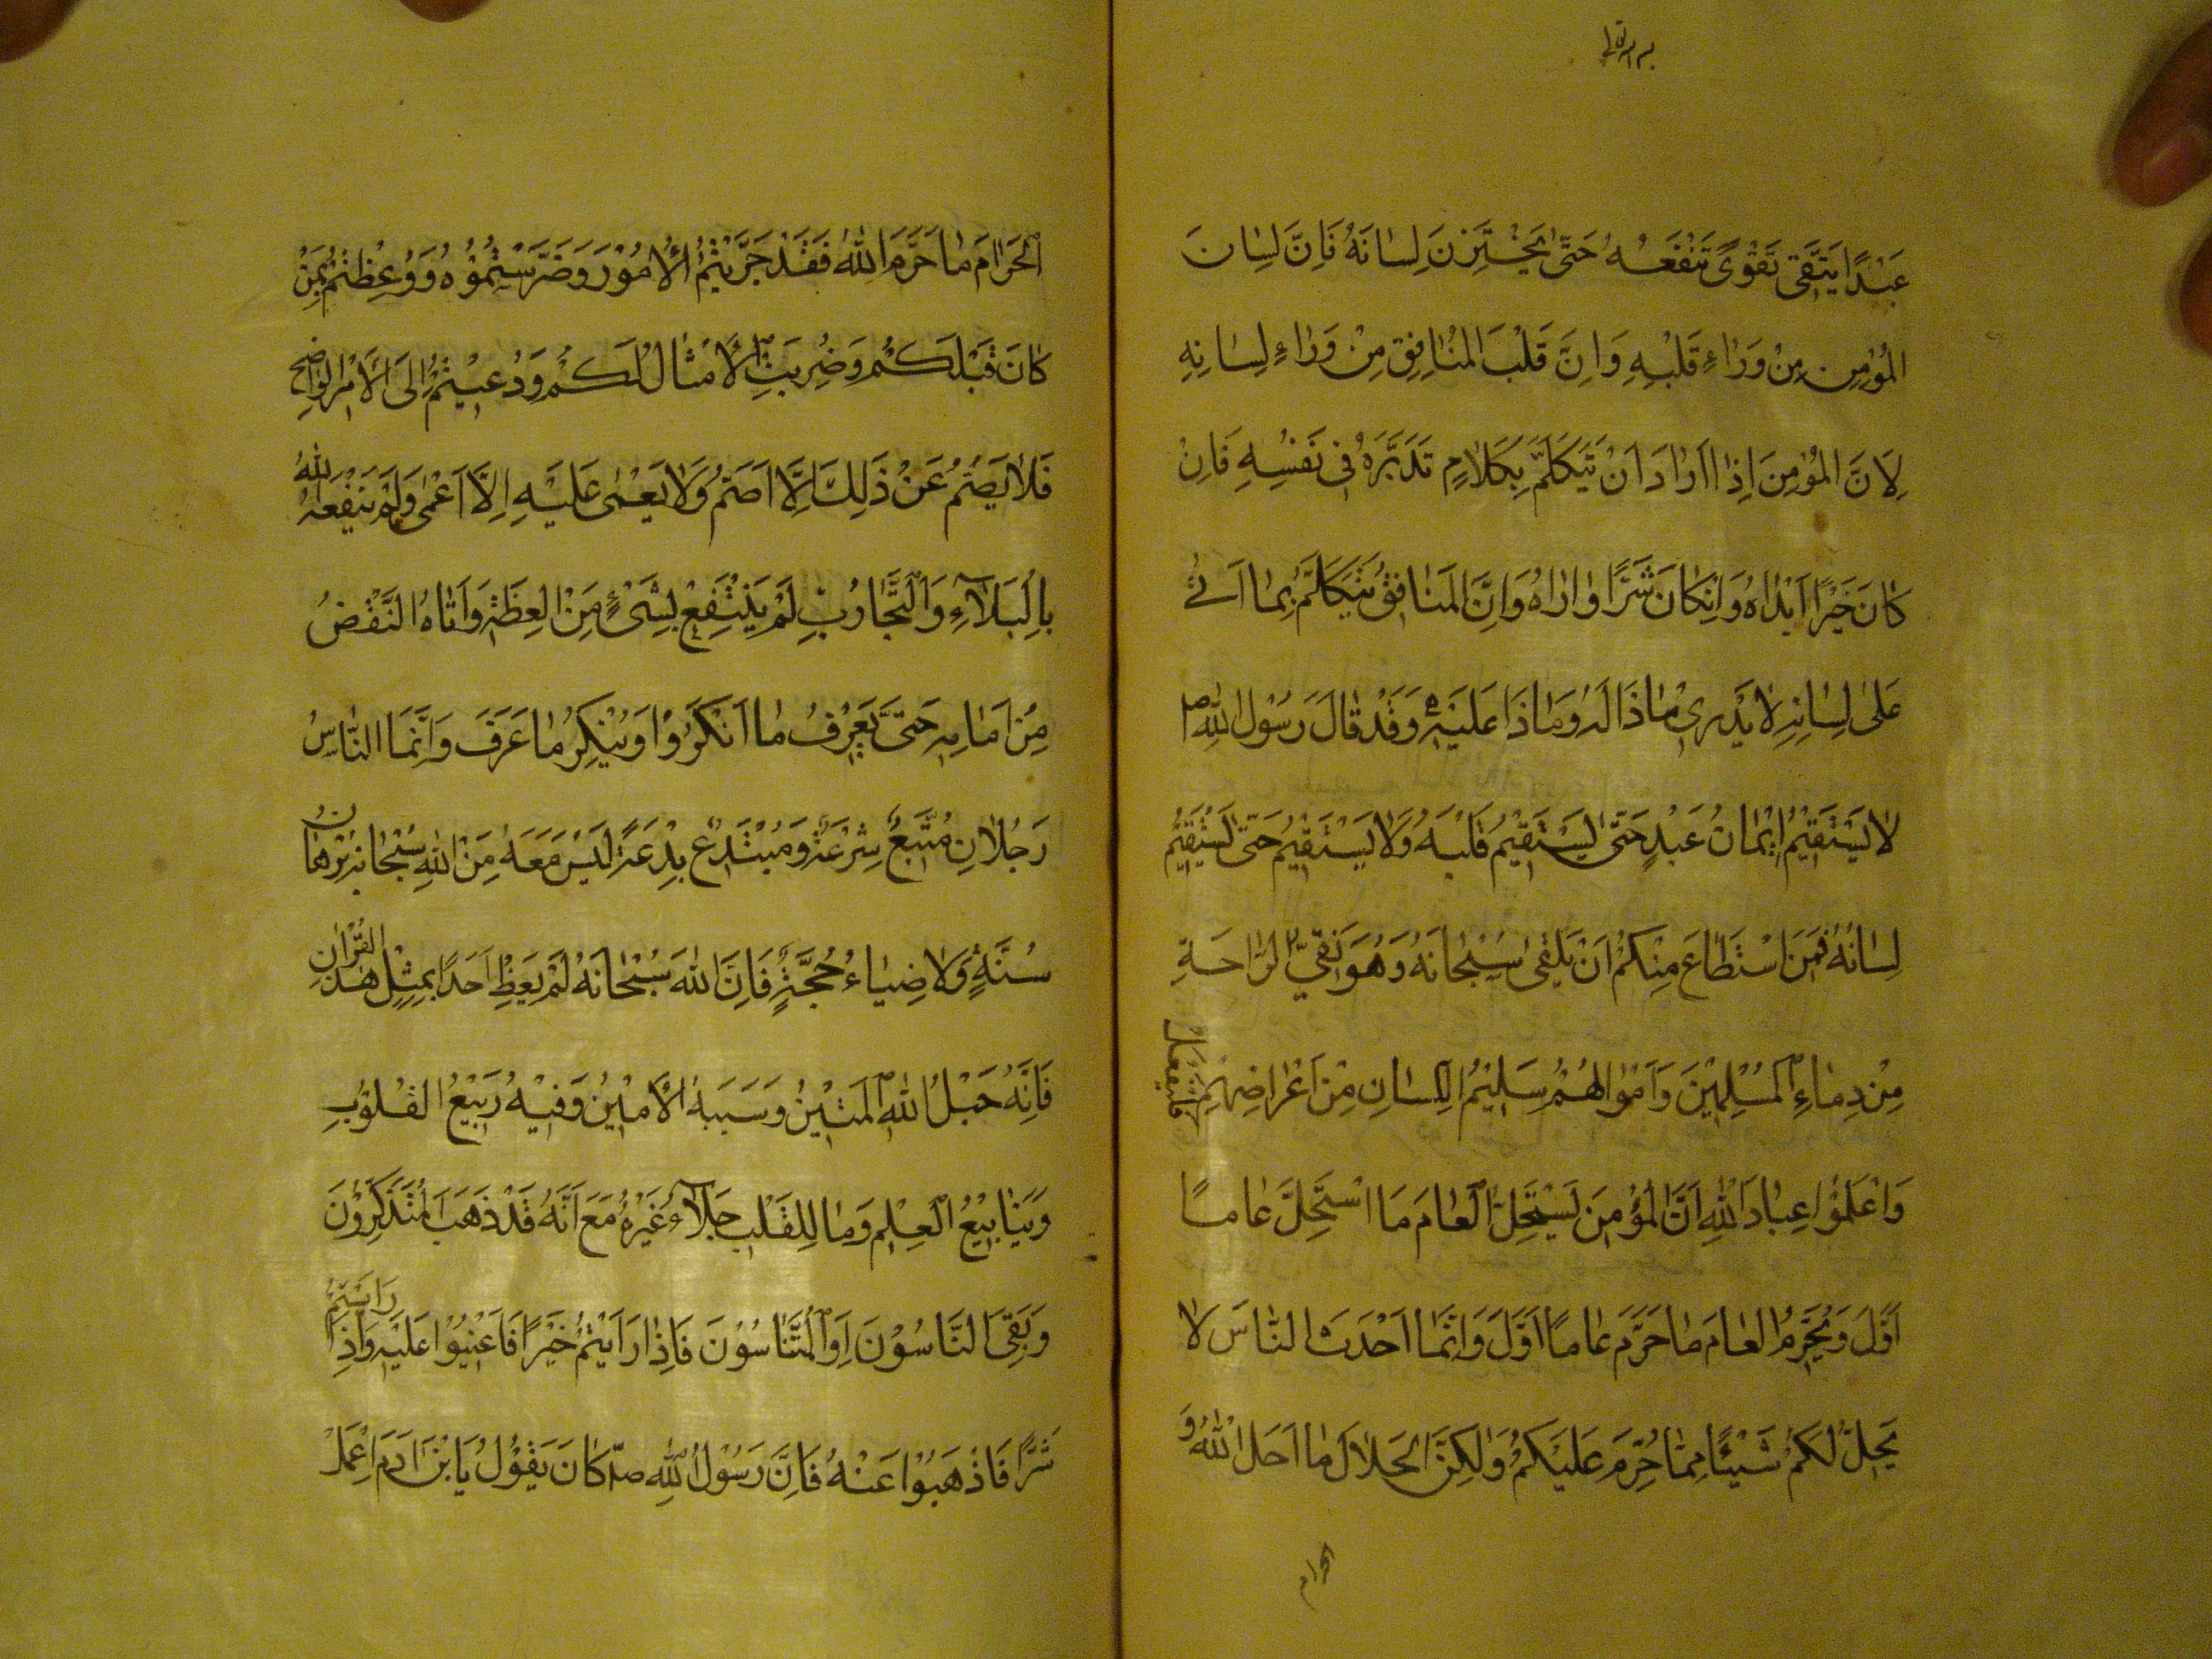 عَبْدًا يَتَّقِى تَقْوًى تَنْفَعُهُ حَتّٰى يَخْتَزِنَ لِسَانَهُ فَاِنَّ لِسَانَ
المُؤْمِنِ مِنْ وَرَاءِ قَلْبِهِ وَاِنَّ قَلْبَ المُنَافِقِ مِنْ وَرَاءِ لِسَانِهِ
لِاَنَّ المُؤْمِنَ اِذَا اَرَادَ اَنْ يَتَكَلَّمَ بِكَلَامٍ تَدَبَّرَهُ فِى نَفْسِهِ فَاِنْ
كَانَ خَيْرًا اَبْدَاهُ وَاِنْ كَانَ شَرًّا وَارَاهُ وَاِنَّ المُنَافِقَ يَتَكَلَّمُ بِمَا اَتٰى
عَلٰى لِسَانِهِ لَا يَدْرِى مَاذَا لَهُ وَمَاذَا عَلَيْهِ وَقَدْ قَالَ رَسُوْلُ اللهِ ص
لَا يَسْتَقِيْمُ اِيْمَانُ عَبْدٍ حَتّٰى يَسْتَقِيْمَ قَلْبُهُ وَلَا يَسْتَقِيْمُ حَتّٰى يَسْتَقِيْمَ
لِسَانُهُ فَمَنْ اسْتَطَاعَ مِنْكُمْ اَنْ يَلْقٰى سُبْحَانَهُ وَهُوَ نَقِىُّ الرَّاحَةِ
مِنْ دِمَاءِ الْمُسْلِمِيْنَ وَاَمْوَالِهُمْ سَلِيْمُ اللِّسَانِ مِنْ اَعْرَاضِهِمْ فَلْيَفْعَلْ
وَاعْلَمُوْا عِبَادَ اللهِ اَنَّ المُؤْمِنَ يَسْتَحِلُّ الْعَامَ مَا اسْتَحَلَّ عَامًا
اَوَّلَ وَيُحَرِّمُ العَامَ مَا حَرَّمَ عَامًا اَوَّلَ وَاِنَّمَا اَحْدَثَ النَّاسَ لَا
يَحِلُّ لَكُمْ شَيْئًا مِمَّا حُرِّمَ عَلَيْكُمْ وَلٰكِنَّ الحَلَالَ مَا اَحَلَّ اللهُ وَ
الحرام
الْحَرَامَ مَا حَرَّمَ اللهُ فَقَدْ جَرَّبْتُمْ الْاُمُوْرَ وَضَرَّسْتُمُوْهُ وَوُعِظْتُمْ بِمَنْ
كَانَ قَبْلَكُمْ وَضُرِبَتْ الْاَمْثَالُ لَكُمْ وَدُعِيْتُمْ اِلَى الْاَمْرِ الوَاضِحِ
فَلَا يَصَمُّ عَنْ ذٰلِكَ اِلَّا اَصَمُّ وَلَا يَعْمٰى عَلَيْهِ اِلَّا اَعْمٰى وَلَمْ يَنْفَعْهُ اللهُ
بِالْبَلَاءِ وَالتَّجَارُبِ لَمْ يَنْتَفِعْ بِشَىْءٍ مِنَ العِظَةِ وَاَتَاهُ النَّقْضُ
مِنْ اَمَامِهِ حَتّٰى يَعْرِفُ مَا اَنْكَرُوْا وَيُنْكِرُ مَا عَرَفَ وَاِنَّمَا النَّاسُ
رَجُلَانِ مُتَّبِعٌ شِرْعَةً وَمُبْتَدِعٌ بِدْعَةً لَيْسَ مَعَهُ مِنَ اللهِ سُبْحَانَهُ بُرْهَانُ
سُنَّةٍ وَلَا ضِيَاءُ حُجَّةٍ فَاِنَّ اللهَ سُبْحَانَهُ لَمْ يَعِظْ اَحَدًا بِمِثْلِ هٰذَ القُرْاٰنِ
فَاِنَّهُ حَبْلُ اللهِ الْمَتِيْنُ وَسَبَبُهُ الْاَمِيْنُ وَفِيْهِ رَبِيْعُ القُلُوْبِ
وَيَنَابِيْعُ الْعِلْمِ وَمَا لِلْقَلْبِ جَلَآءٌ غَيْرُهُ مَعَ اَنَّهُ قَدْ ذَهَبَ المُتَذَكِّرُوْنَ
وَبَقِىَ النَّاسُوْنَ اَوِ الْمُتَنَاسُوْنَ فَاِذَا رَاَيْتُمْ خَيْرًا فَاَعِيْنُوْا عَلَيْهِ وَاِذَا رَاَيْتُمْ
شَرًّا فَاذْهَبُوْا عَنْهُ فَاِنَّ رَسُوْلَ اللهِ ص كَانَ يَقُوْلُ يَا بْنَ اٰدَمَ اعْمَلْ